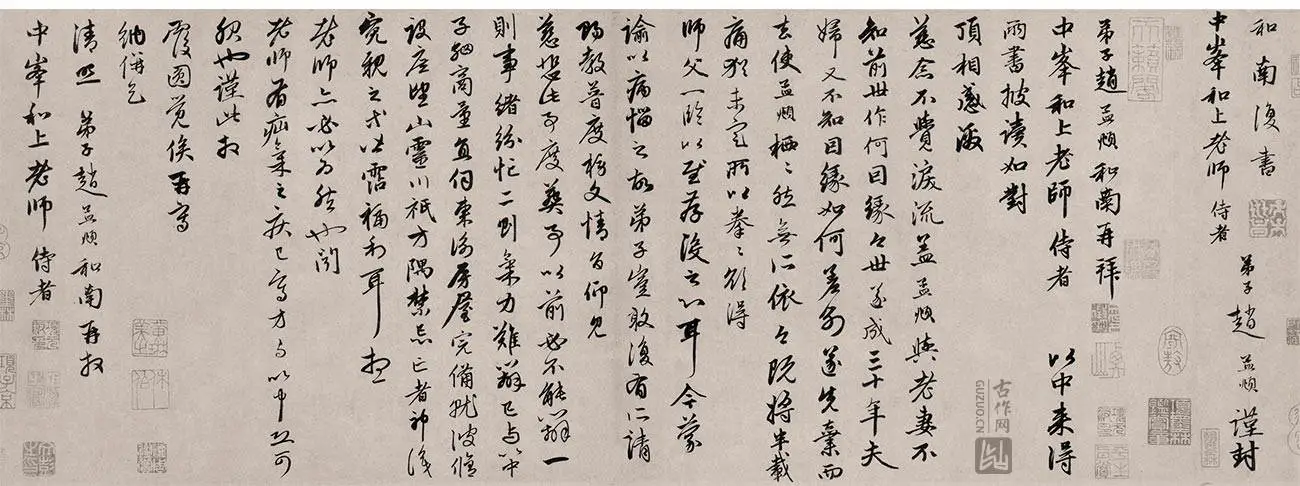 和南復書
中峯和上老師 侍者
弟子趙孟頫謹封
弟子趙孟頫和南再拜
中峯和上老師 侍者 以中来得
兩書披讀如對
頂相感激
慈念不覺淚流蓋孟頫與老妻不
知前世作何因緣今世遂成三十年夫
婦又不知因緣如何差別遂先棄而
去使孟頫栖々然無所依今既將半載
痛猶未定所以拳々欲得
師父一臨以慰存没之心耳今蒙
諭以病惱之故弟子豈敢復有所請
賜教普度榜文情旨仰見
慈悲此事度葬事以前必不能辦一
則事緒紛忙二則氣力難辦已與以中
子細商量宜伺東濱房屋完備就彼脩
設庶望山靈川祇方隅禁忌亡者神識
冤親之等皆霑福利耳想
老師亦必以為然也聞
老師有疝氣之疾已寫方與以中恐可
服也謹此拜
覆圓覺俟再寫
納便乞
清照 弟子趙孟頫和南再拜
中峯和上老師 侍者
古作网
GUZUO.CN